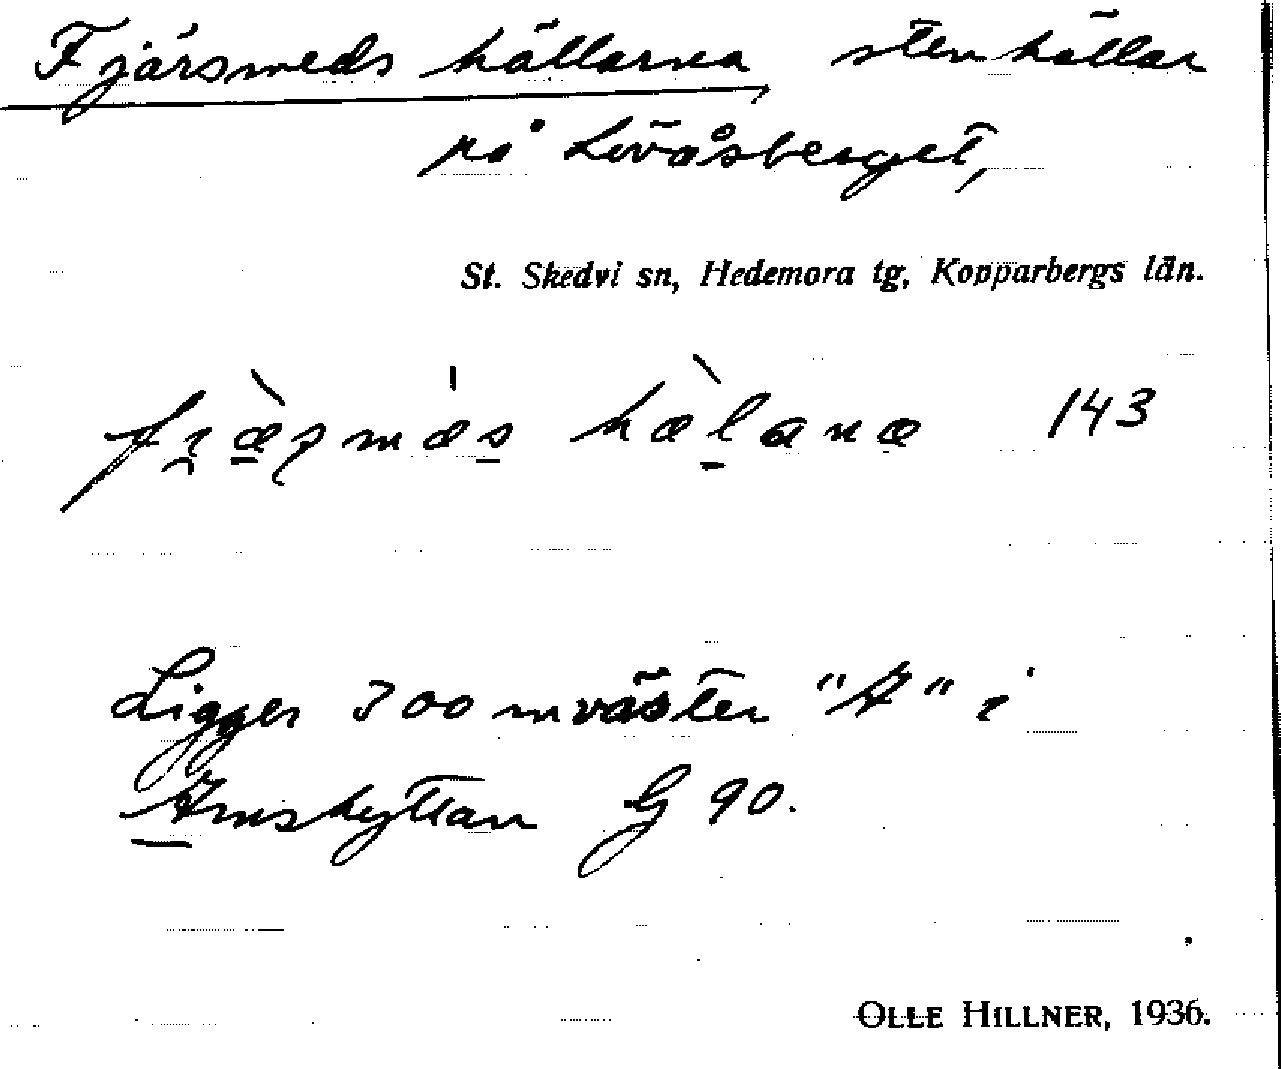 Fjärsmeds hällarna, stenhällar
på Lövåsberget,
St. Skedvi sn, Hedemora tg, Kopparbergs län.
hælana 143
Ligger 300 m väster "A" i
Amshyttan G 90.
OLLE HILLNER, 1936.